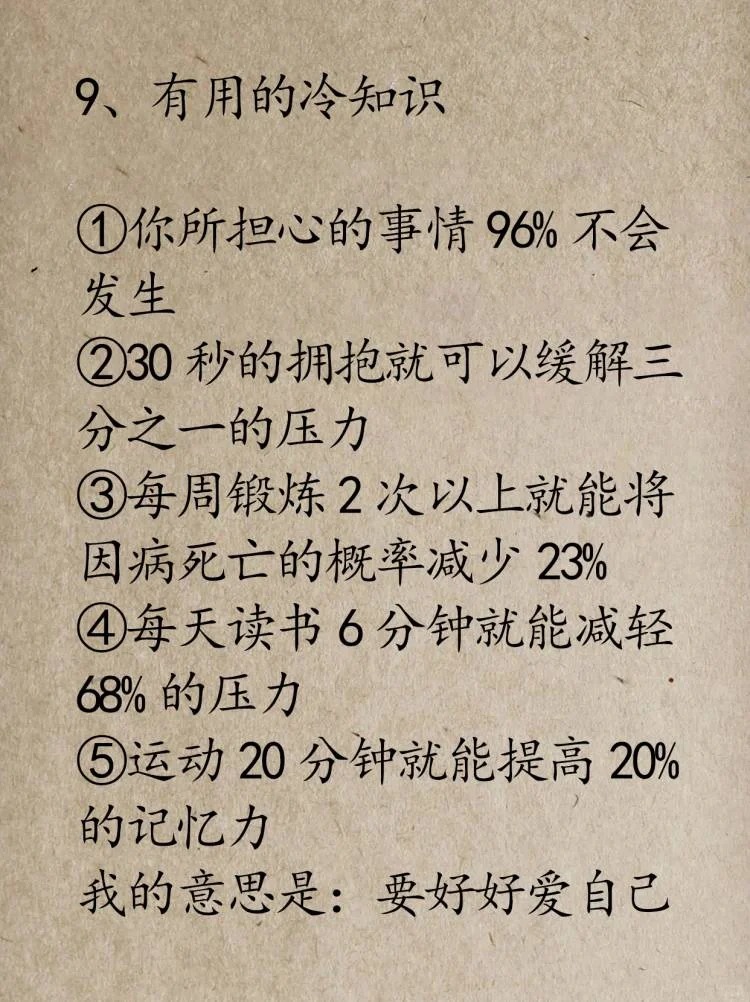 9、有用的冷知识
①你所担心的事情 96% 不会
发生
②30 秒的拥抱就可以缓解三
分之一的压力
③每周锻炼 2 次以上就能将
因病死亡的概率减少 23%
④每天读书 6 分钟就能减轻
68% 的压力
⑤运动 20 分钟就能提高 20%
的记忆力
我的意思是：要好好爱自己